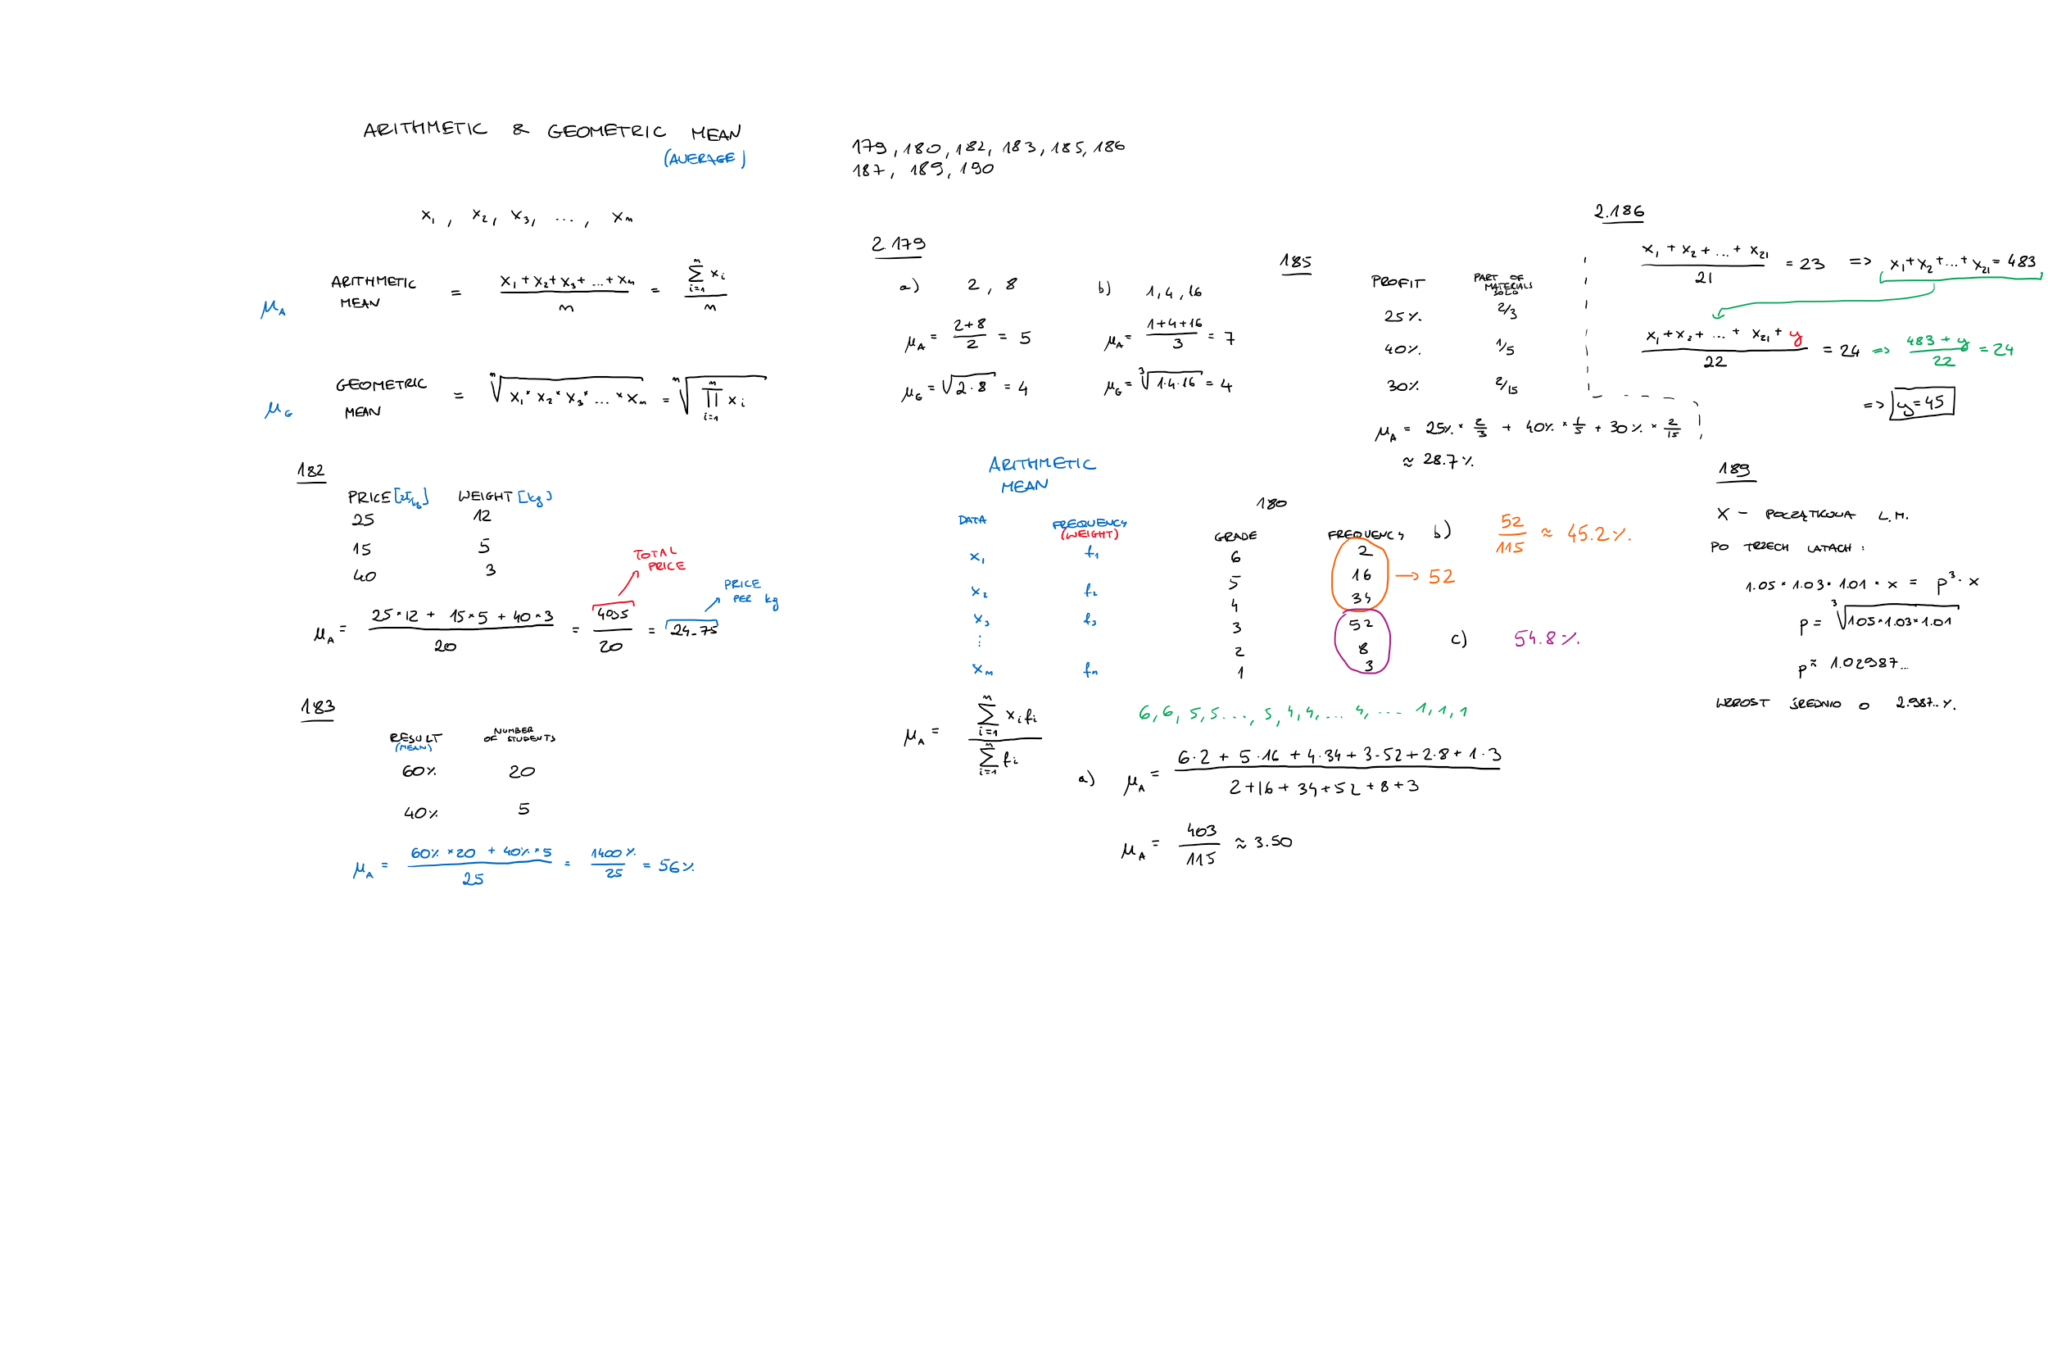 ARITHMETIC & GEOMETRIC MEAN
(AVERAGE)
x₁, x₂, x₃, ..., xₙ
μ_A ARITHMETIC MEAN = (x₁+x₂+x₃+...+xₙ)/n = (∑_{i=1}^{n} xᵢ)/n
μ_G GEOMETRIC MEAN = ⁿ√(x₁*x₂*x₃*...*xₙ) = ⁿ√(∏_{i=1}^{n} xᵢ)
182
PRICE [zł/kg] WEIGHT [kg]
25 12
15 5
40 3
TOTAL PRICE
PRICE PER kg
μ_A = (25*12 + 15*5 + 40*3)/20 = 4035/20 = 24.75
183
RESULT (MEAN) NUMBER OF STUDENTS
60% 20
40% 5
μ_A = (60%*20 + 40%*5)/25 = 1400%/25 = 56%
179, 180, 182, 183, 185, 186
187, 189, 190
2.179
a) 2, 8
μ_A = (2+8)/2 = 5
μ_G = √(2·8) = 4
b) 1, 4, 16
μ_A = (1+4+16)/3 = 7
μ_G = ³√(1·4·16) = 4
ARITHMETIC MEAN
DATA FREQUENCY (WEIGHT)
x₁ f₁
x₂ f₂
x₃ f₃
⋮
xₙ fₙ
μ_A = (∑_{i=1}^{n} xᵢfᵢ)/(∑_{i=1}^{n} fᵢ)
180
GRADE FREQUENCY
6 2
5 16
4 34
3 52
2 8
1 3
→ 52
b) 52/115 ≈ 45.2%
c) 54.8%
6, 6, 5, 5..., 5, 4, 4, ... 4, ... 1, 1, 1
a) μ_A = (6·2 + 5·16 + 4·34 + 3·52 + 2·8 + 1·3)/(2+16+34+52+8+3)
μ_A = 403/115 ≈ 3.50
185
PROFIT PART OF MATERIALS SOLD
25% 2/3
40% 1/5
30% 2/15
μ_A = 25% * 2/3 + 40% * 1/5 + 30% * 2/15
≈ 28.7%
2.186
(x₁+x₂+...+x₂₁)/21 = 23 => x₁+x₂+...+x₂₁ = 483
(x₁+x₂+...+x₂₁+y)/22 = 24 => (483+y)/22 = 24
=> y=45
189
X - POCZĄTKOWA L.M.
PO TRZECH LATACH:
1.05·1.03·1.01·x = p³·x
p = ³√(1.05·1.03·1.01)
p ≈ 1.02987...
WZROST ŚREDNIO O 2.987..%.